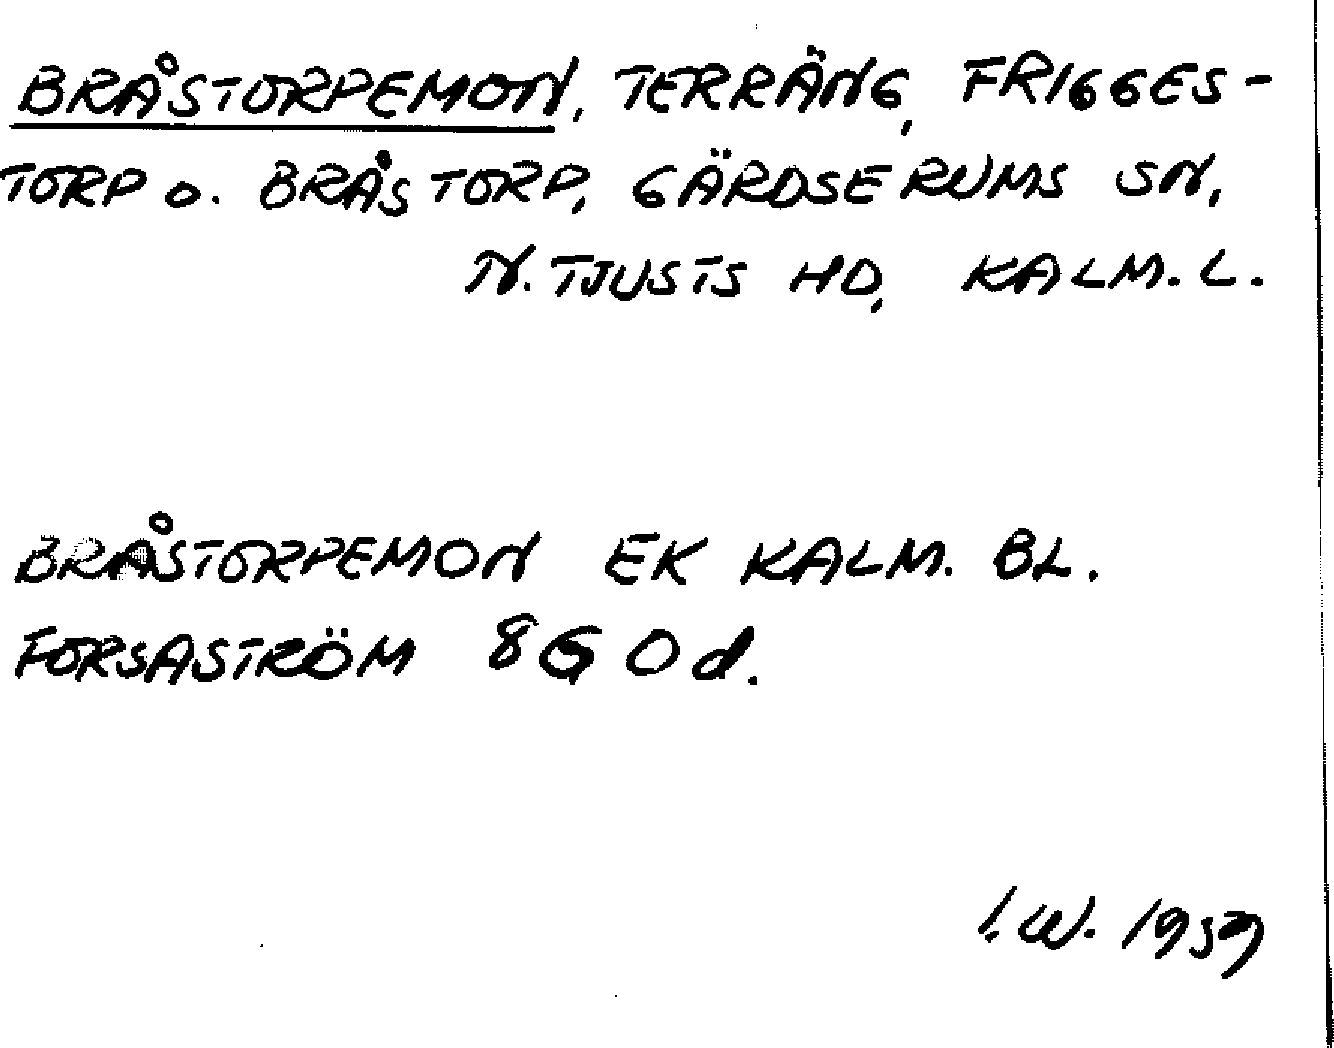 BRÅSTORPEMON, TERRÄNG, FRIGGES-
TORP o. BRÅSTORP, GÄRDSERUMS SN,
N. TJUSTS HD, KALM. L.
BRÅSTORPEMON EK KALM. BL.
FORSASTRÖM 8G Od.
I.W. 1959